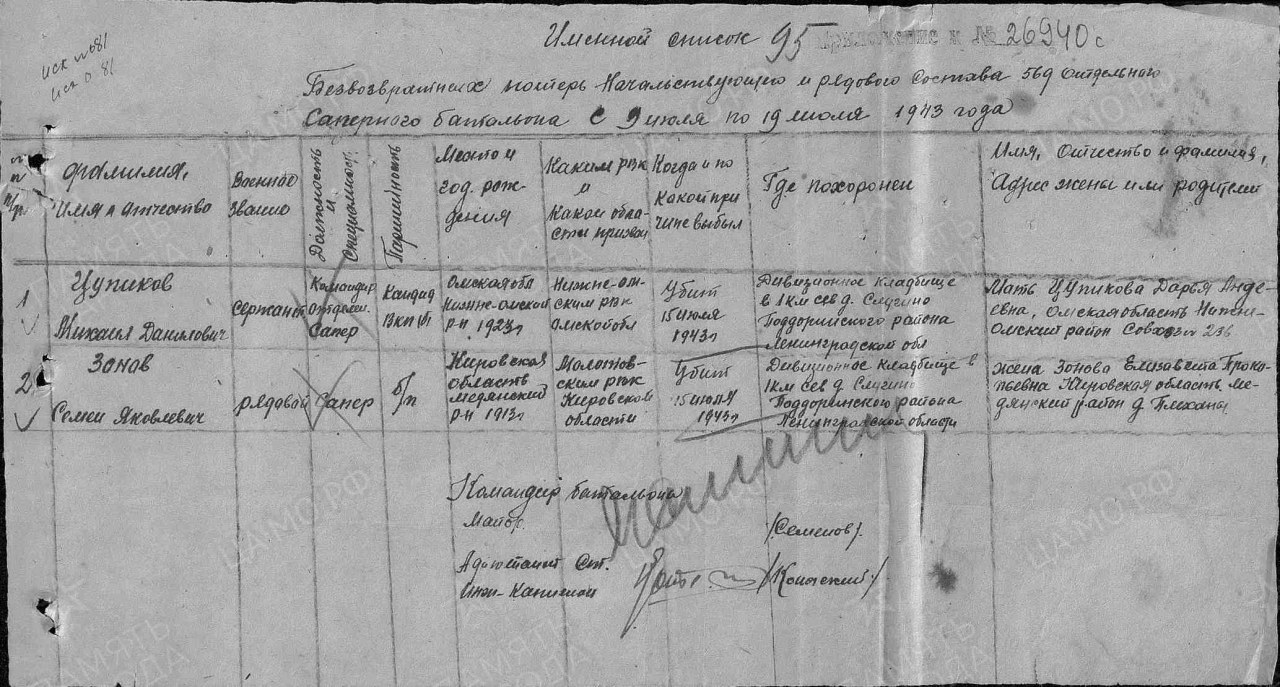 Именной список 95 Приложение к № 26940с
исх № 081
исх 0 81
Безвозвратных потерь Начальствующего и рядового состава 56д отдельного
Саперного батальона с 9 июля по 19 июля 1943 года
№ п/п
Фамилия,
Имя и отчество
Военное
Звание
Должность
и
Специальност.
Партийность
Место и
год рож-
дения
Каким рвк
и
Какой обла-
сти призван
Когда и по
Какой при
чине выбыл
Где похоронен
Имя, Отчество и фамилия,
Адрес жены или родителей
1
Цупиков
Михаил Данилович
Сержант
Командир
отделен.
Сапер
Кандид
ВКП/б/
Омская обл
Нижне-омской
р-н 1923г
Нижне-ом-
ским рвк
Омской обл
Убит
15 июля
1943г
Дивизионное кладбище
в 1 км сев д. Слугино
Поддорийского района
Ленинградской обл
Мать Цупикова Дарья Анде-
евна, Омская область Нижне-
Омский район Совхоз 236
2
Зонов
Семен Яковлевич
рядовой
Сапер
б/п
Кировская
область
Медянский
р-н 1913г
Молотов-
ским рвк
Кировской
области
Убит
15 июля
1943г
Дивизионное кладбище в
1 км сев д. Слугино
Поддоринского района
Ленинградской области
жена Зонова Елизавета Прока-
пьевна Кировская область Ме-
дянский район д.
Командир батальона
Майор
/Семенов/.
Адъютант Ст.
Инж-Капитан
ЦАМО.РФ
ПАМЯТЬ
НАРОДА